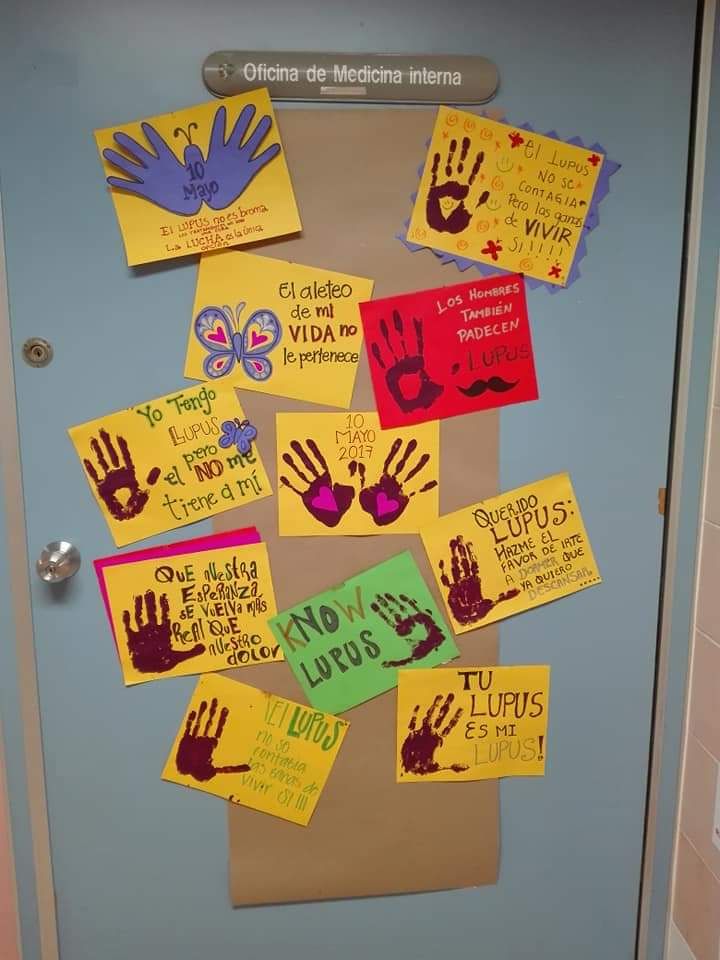 Oficina de Medicina interna
10
Mayo
El LUPUS no es broma
La LUCHA es la única
opción
El LUPUS
NO SE
CONTAGIA
Pero las ganas
de VIVIR
SI!!!!!
El aleteo
de mi
VIDA no
le pertenece
LOS HOMBRES
TAMBIÉN
PADECEN
LUPUS
Yo Tengo
LUPUS
pero
el NO me
tiene a mí
10
MAYO
2017
QUERIDO
LUPUS:
HAZME EL
FAVOR DE IRTE
A DORMIR QUE
YA QUIERO
DESCANSAR.....
QUE NUESTRA
ESPERANZA
SE VUELVA MÁS
REAL QUE
NUESTRO
DOLOR
KNOW
LUPUS
El LUPUS
no se
contagia
las ganas de
vivir SI!!!
TU
LUPUS
ES MI
LUPUS!